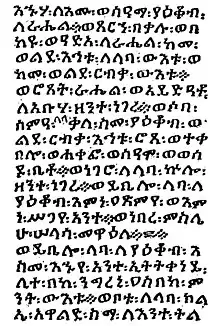 እኁሃ፡ለእሙ፡ወሰዓማ፡ያዕቆብ፡
ለራሔል፡ወጸርኀ፡በቃሉ፡ወበ
ከየ፡ለራሔል፡ከመ፡
ወልደ፡እኅቱ፡ለላባ፡ውእቱ፡ወ
ከመ፡ወልደ፡ርብቃ፡ውእቱ።
ወሮጸት፡ራሔል፡ወአይድዐቶ፡
ለአቡሃ፡ዘንተ፡ነገረ።ወሶበ፡
ሰምዐ፡ቃለ፡ስመ፡ያዕቆብ፡ወ
ልደ፡ርብቃ፡እኅቱ፡ሮጸ፡ወተቀ
በሎ፡ወሐቀፎ፡ወሰዐሞ፡ወወሰ
ዶ፡ቤቶ።ወነገሮ፡ለላባ፡ኵሎ፡
ዘንተ፡ነገረ።ወይቤሎ፡ላባ፡ለ
ያዕቆብ፡እምነ፡ዐጽምየ፡ወእ
ምነ፡ሥጋየ፡አንተ።ወነበረ፡ምስሌ
ሁ፡ሠላሳ፡መዋዕለ።
ወይቤሎ፡ላባ፡ለያዕቆብ፡እ
ስመ፡እኁየ፡አንተ፡ኢትትቀነይ፡
ሊተ፡በከ፡ንግረኒ፡ዐስበከ፡ም
ንት፡ውእቱ።ወቦቱ፡ለላባ፡ክል
ኤ፡አዋልድ፡ስማ፡ለእንተ፡ትል